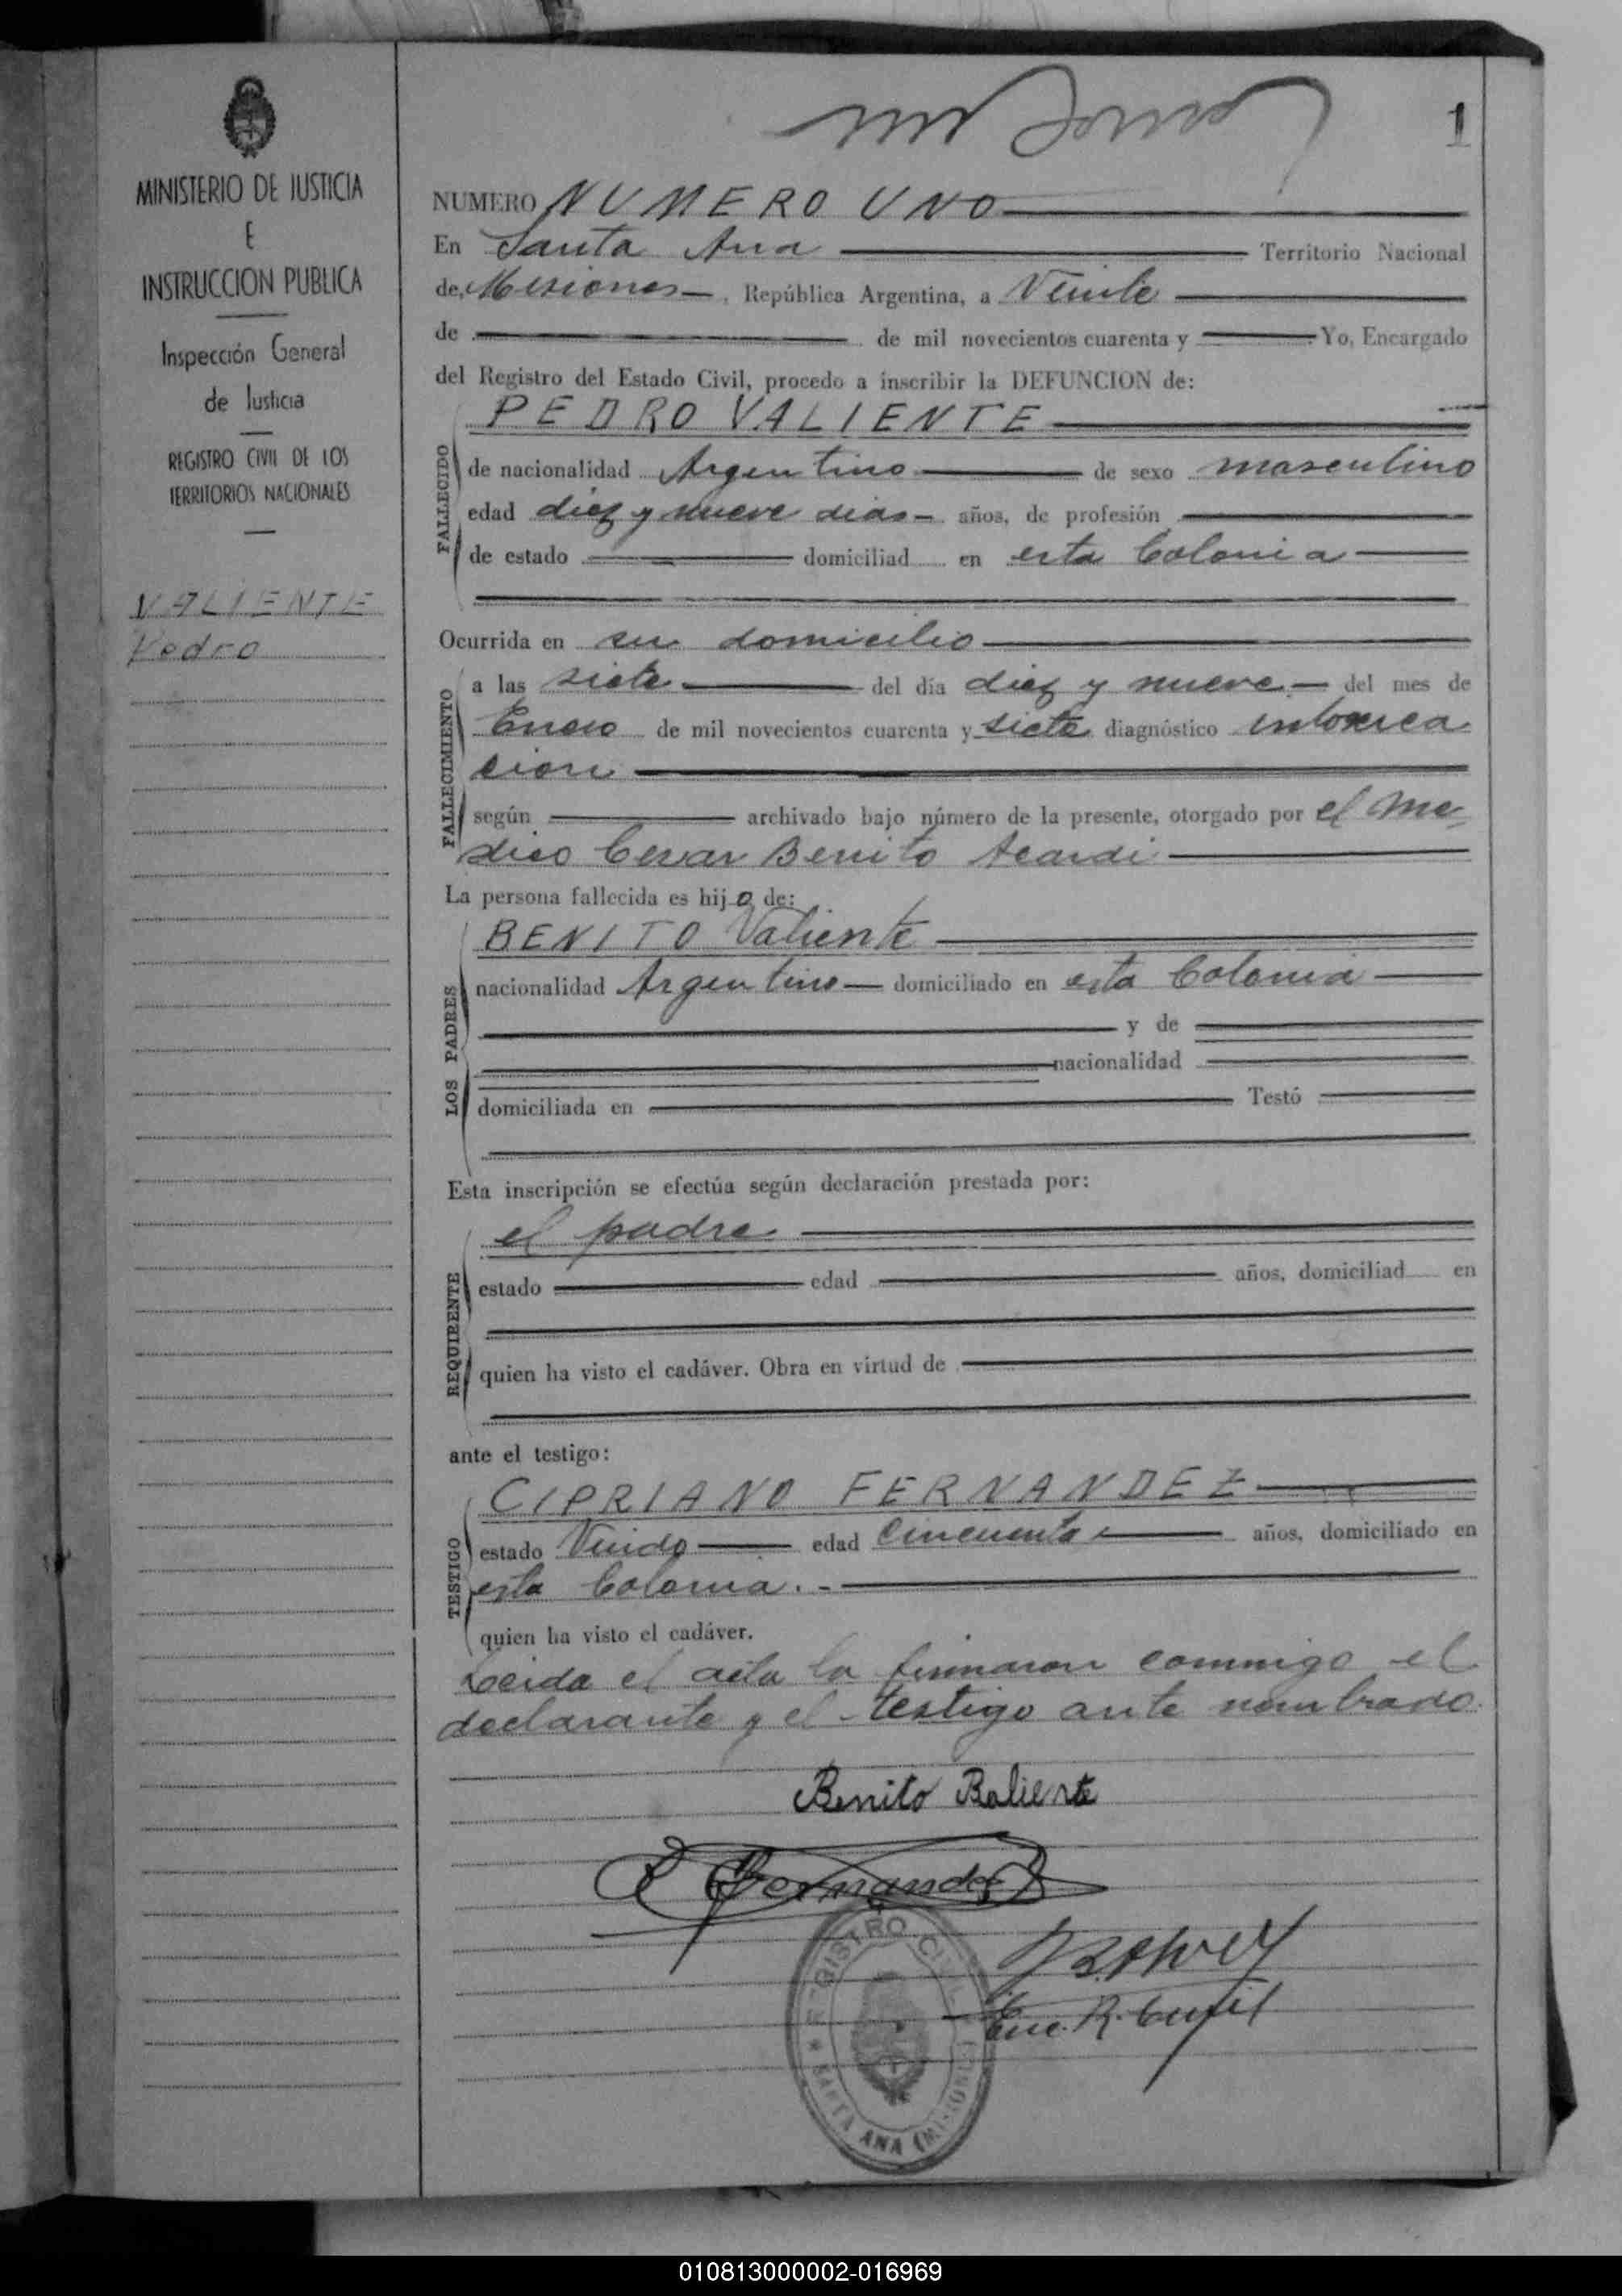 1
MINISTERIO DE JUSTICIA
E
INSTRUCCION PUBLICA
Inspección General
de Justicia
REGISTRO CIVIL DE LOS
TERRITORIOS NACIONALES
VALIENTE
Pedro
NUMERO NUMERO UNO
En Santa Ana Territorio Nacional
de Misiones, República Argentina, a Veinte
de de mil novecientos cuarenta y Yo, Encargado
del Registro del Estado Civil, procedo a inscribir la DEFUNCION de:
PEDRO VALIENTE
FALLECIDO
de nacionalidad Argentino de sexo masculino
edad diez y nueve dias años, de profesión
de estado domiciliad en esta Colonia
Ocurrida en su domicilio
FALLECIMIENTO
a las siete del día diez y nueve del mes de
Enero de mil novecientos cuarenta y siete diagnóstico intoxica
cion
según archivado bajo número de la presente, otorgado por el Me
dico Cesar Benito Acardi
La persona fallecida es hijo de:
LOS PADRES
BENITO Valiente
nacionalidad Argentino domiciliado en esta Colonia
y de
nacionalidad
domiciliada en Testó
Esta inscripción se efectúa según declaración prestada por:
REQUIRENTE
el padre
estado edad años, domiciliad en
quien ha visto el cadáver. Obra en virtud de
ante el testigo:
TESTIGO
CIPRIANO FERNANDEZ
estado Viudo edad Cincuenta años, domiciliado en
esta Colonia.-
quien ha visto el cadáver.
Leida el acta la firmaron conmigo el
declarante y el testigo ante nombrado.
Benito Baliente
Fernandez
REGISTRO CIVIL
SANTA ANA (MISIONES)
Enc. R. Civil
010813000002-016969